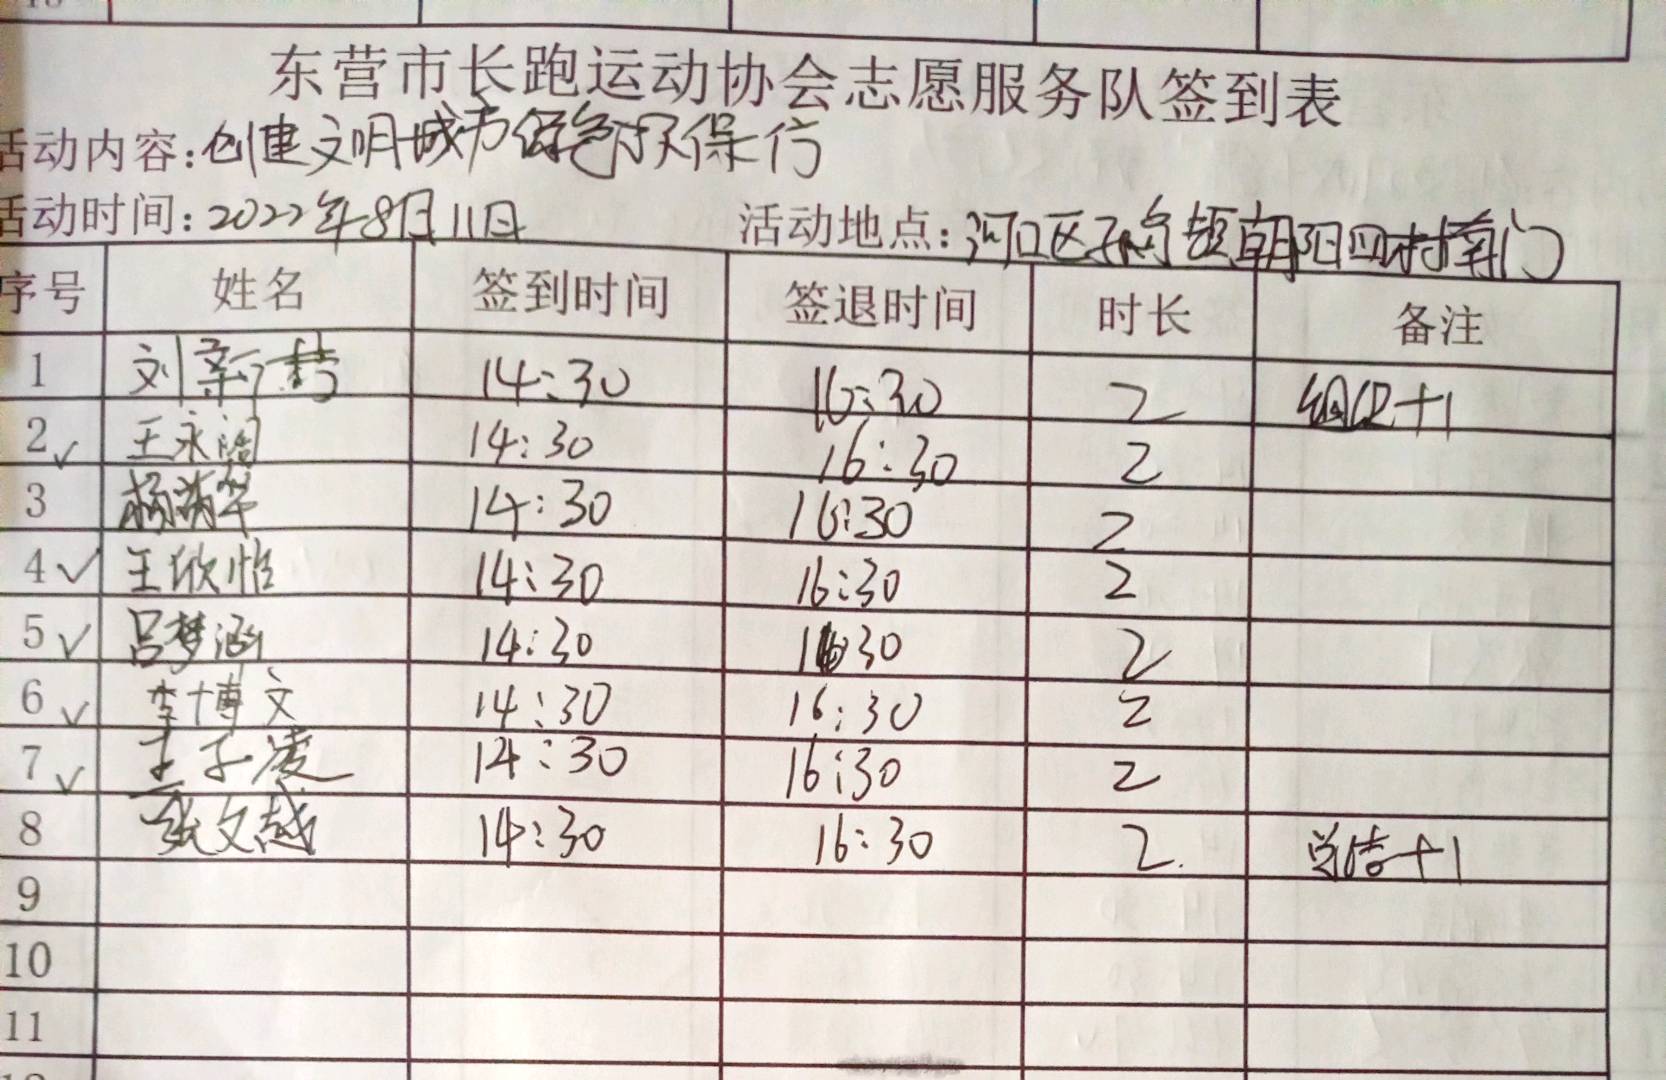 东营市长跑运动协会志愿服务队签到表
活动内容:创建文明城市 绿色环保行
活动时间:2022年8月11日 活动地点:河口区孤岛镇朝阳四村南门
序号 姓名 签到时间 签退时间 时长 备注
1 刘 14:30 16:30 2 组织+1
2 ✓ 王永 14:30 16:30 2
3 杨 14:30 16:30 2
4 ✓ 王欣怡 14:30 16:30 2
5 ✓ 吕梦涵 14:30 16:30 2
6 ✓ 李博文 14:30 16:30 2
7 ✓ 王子凌 14:30 16:30 2
8 张文越 14:30 16:30 2 总结+1
9
10
11